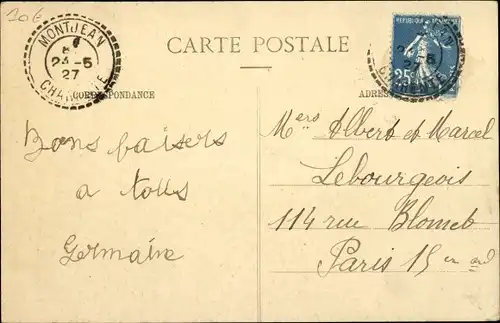 10€
MONTJEAN
24-5
27
CHARENTE
CARTE POSTALE
RÉPUBLIQUE FRANÇAISE
25c
CORRESPONDANCE
ADRESSE
Bons baisers
a tous
Germaine
Mers Albert et Marcel
Lebourgeois
114 rue Blomet
Paris 15 em